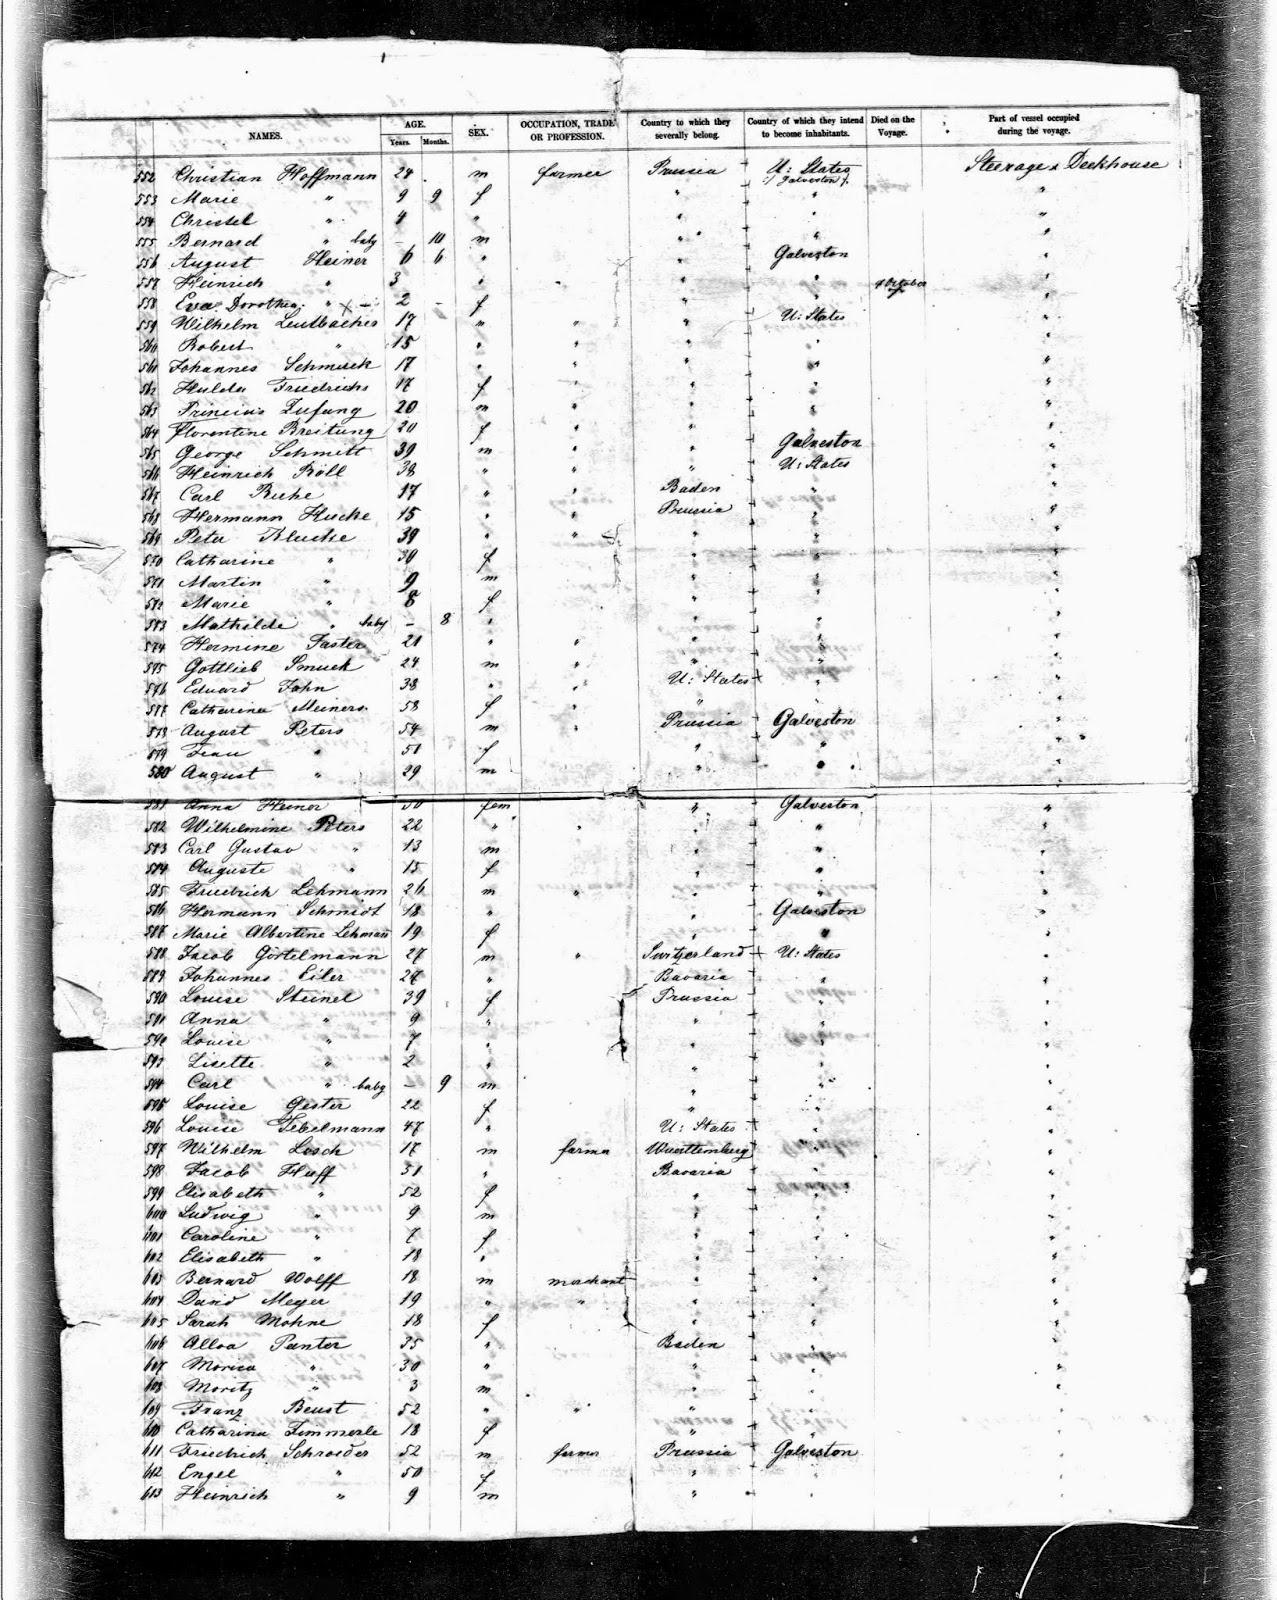 NAMES. AGE. Years. Months. SEX. OCCUPATION, TRADE OR PROFESSION. Country to which they severally belong. Country of which they intend to become inhabitants. Died on the Voyage. Part of vessel occupied during the voyage.
552 Christian Hoffmann 24 m farmer Prussia U: States Steerage & Deckhouse
./. Galveston ./.
553 Marie " 9 9 f " " "
554 Christel " 4 " " " "
555 Bernard " baby - 10 m " " "
556 August Heiner 6 6 " " Galveston "
557 Heinrich " 3 " " " "
558 Eva Dorothea " 2 - f " "
559 Wilhelm 17 " " " U: States "
560 Robert " 15 " " " " "
561 Johannes Schmuck 17 " " " " "
562 Hulda Friedrichs 17 f " " " "
563 Zufung 20 m " " " "
564 Florentine Breitung 20 f " " " "
565 George Schmitt 39 m " " Galveston "
566 Heinrich Röll 38 " " " U: States "
567 Carl Ruhe 17 " " Baden " "
568 Hermann Hucke 15 " " Prussia " "
569 Peter Blucke 39 " " " " "
570 Catharine " 30 f " " "
571 Martin " 9 m " " "
572 Marie " 8 f " " "
573 Mathilde " baby - 8 " " " "
574 Hermine Faster 21 " " " " "
575 Gottlieb Smuck 24 m " " " "
576 Eduard John 38 " " U: States " "
577 Catharina Meiners 58 f " " "
578 August Peters 54 m " Prussia Galveston "
579 Frau " 51 f " " "
580 August " 29 m " " "
581 Anna Heiner 30 fem " Galveston "
582 Wilhelmine Peters 22 " " " " "
583 Carl Gustav " 13 m " " "
584 Auguste " 15 f " " "
585 Friedrich Lehmann 26 m " " " "
586 Hermann Schmidt 18 " " Galveston "
587 Marie Albertine Lehmann 19 f " " "
588 Jacob Görtelmann 27 m " Switzerland U: States "
589 Johannes Eiler 27 " Bavaria " "
590 Louise Steinel 39 f Prussia " "
591 Anna " 9 " " " "
592 Louise " 7 " " " "
593 Lisette " 2 " " " "
594 Carl " baby - 9 m " " "
595 Louise Gester 22 f " " "
596 Louise Tebelmann 47 " U: States " "
597 Wilhelm Losch 17 m farmer Wuerttemberg " "
598 Jacob Huff 51 " Bavaria " "
599 Elisabeth " 52 f " " "
600 Ludwig " 9 m " " "
601 Caroline " 7 f " " "
602 Elisabeth " 18 " " " "
603 Bernard Wolff 18 m merchant " " "
604 David Meyer 19 " " " " "
605 Sarah Mohne 18 f " " "
606 Panter 35 " Baden " "
607 " 30 " " " "
608 Moritz " 3 m " " "
609 Franz Beust 52 " " " " "
610 Catharina Zimmerle 18 f " " "
611 Friedrich Schroeder 52 m farmer Prussia Galveston "
612 Engel " 50 f " " "
613 Heinrich " 9 m " " "